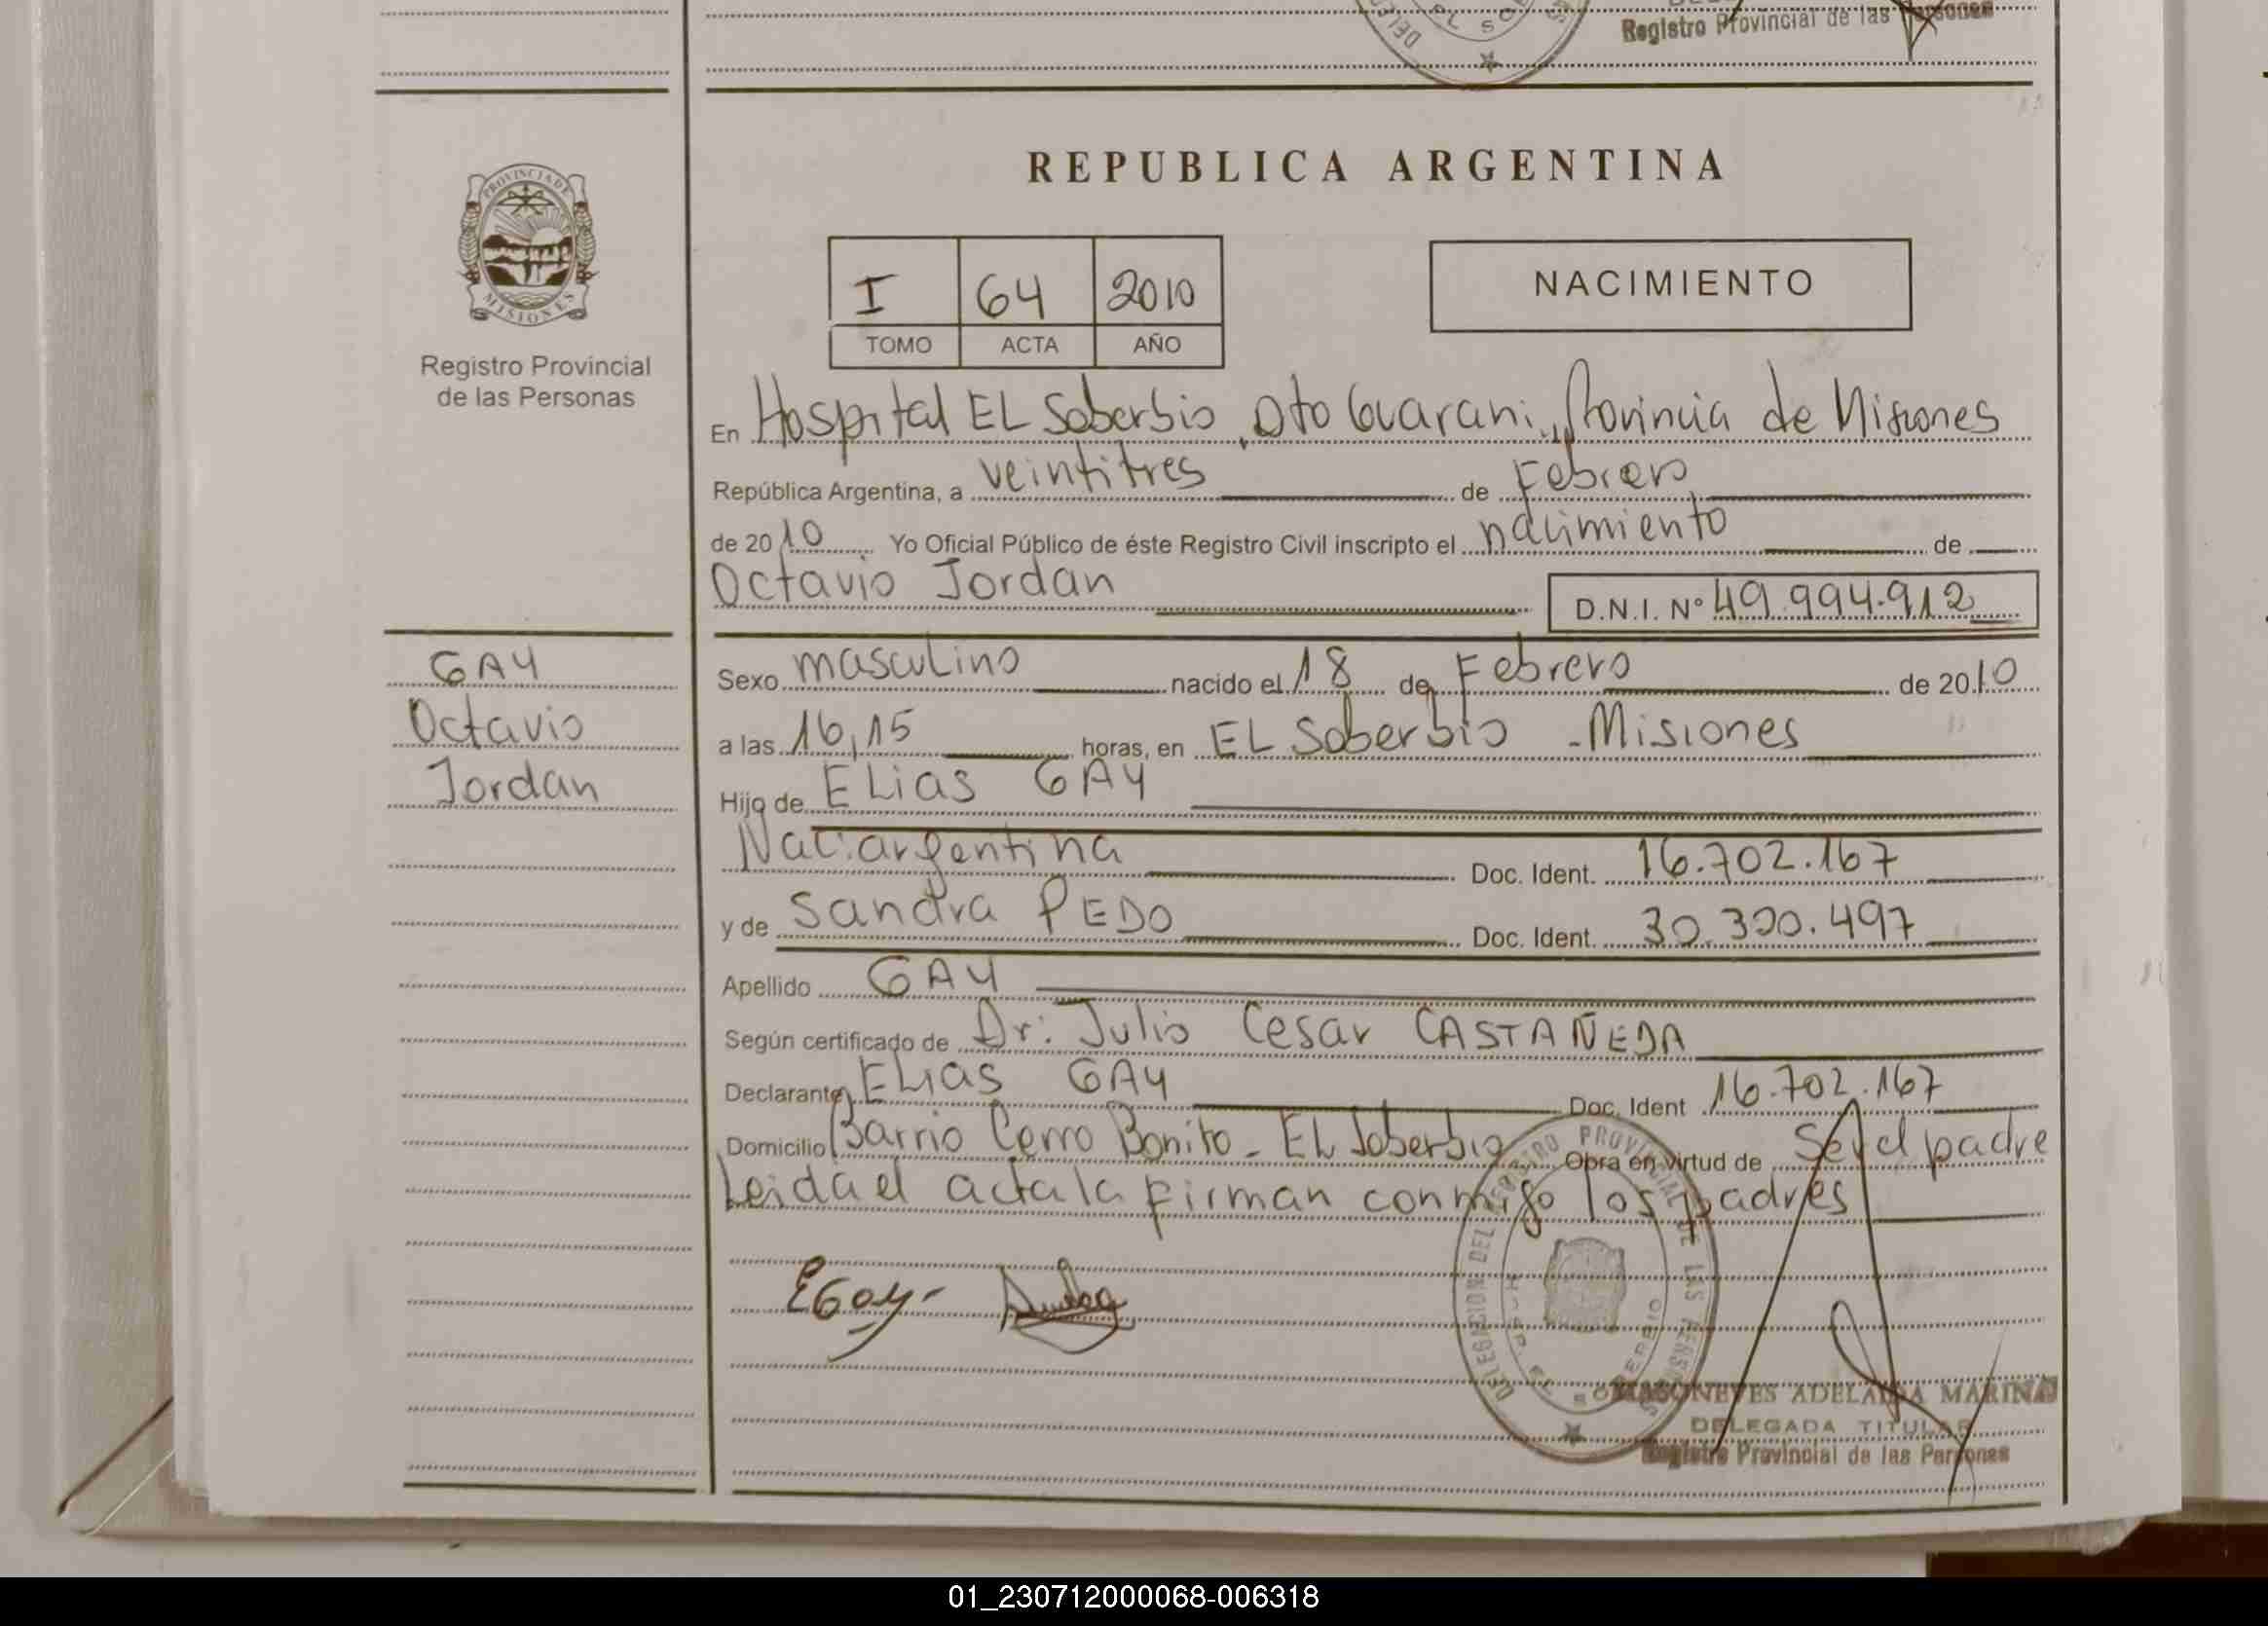 Registro Provincial de las Personas
REPUBLICA ARGENTINA
PROVINCIA DE
MISIONES
Registro Provincial
de las Personas
I 64 2010
TOMO ACTA AÑO
NACIMIENTO
En Hospital EL Soberbio, Dto Guarani, Provincia de Misiones
República Argentina, a veintitres de Febrero
de 2010 Yo Oficial Público de éste Registro Civil inscripto el nacimiento de
Octavio Jordan D.N.I. Nº 49.994.912
GAY
Octavio
Jordan
Sexo masculino nacido el 18 de Febrero de 2010
a las 16,15 horas, en EL Soberbio - Misiones
Hijo de ELias GAY
Nac: argentina Doc. Ident. 16.702.167
y de Sandra PEDO Doc. Ident. 30.390.497
Apellido GAY
Según certificado de Dr: Julio Cesar CASTAÑEDA
Declarante ELias GAY Doc. Ident 16.702.167
Domicilio Barrio Cerro Bonito - EL Soberbio Obra en virtud de Ser el padre
Leida el acta la firman conmigo los padres
EGay-
DELEGACION DEL REGISTRO PROVINCIAL DE LAS PERSONAS
ADELAIDA MARINA
DELEGADA TITULAR
Registro Provincial de las Personas
01_230712000068-006318